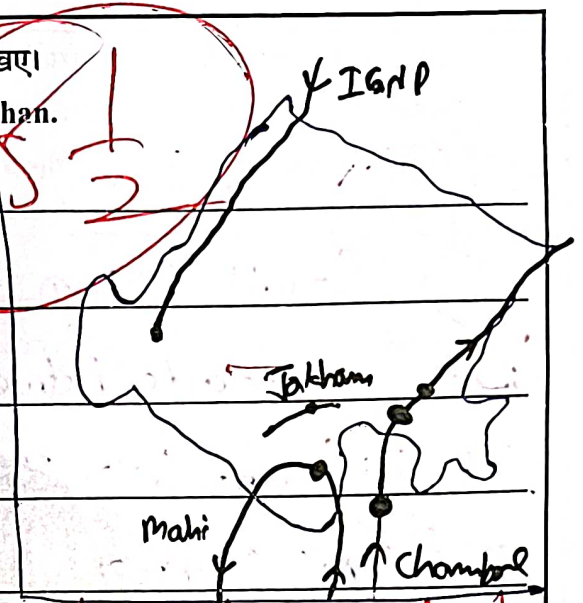 खिए।
han.
5 1/2
IGNP
Jakham
Mahi
Chambal